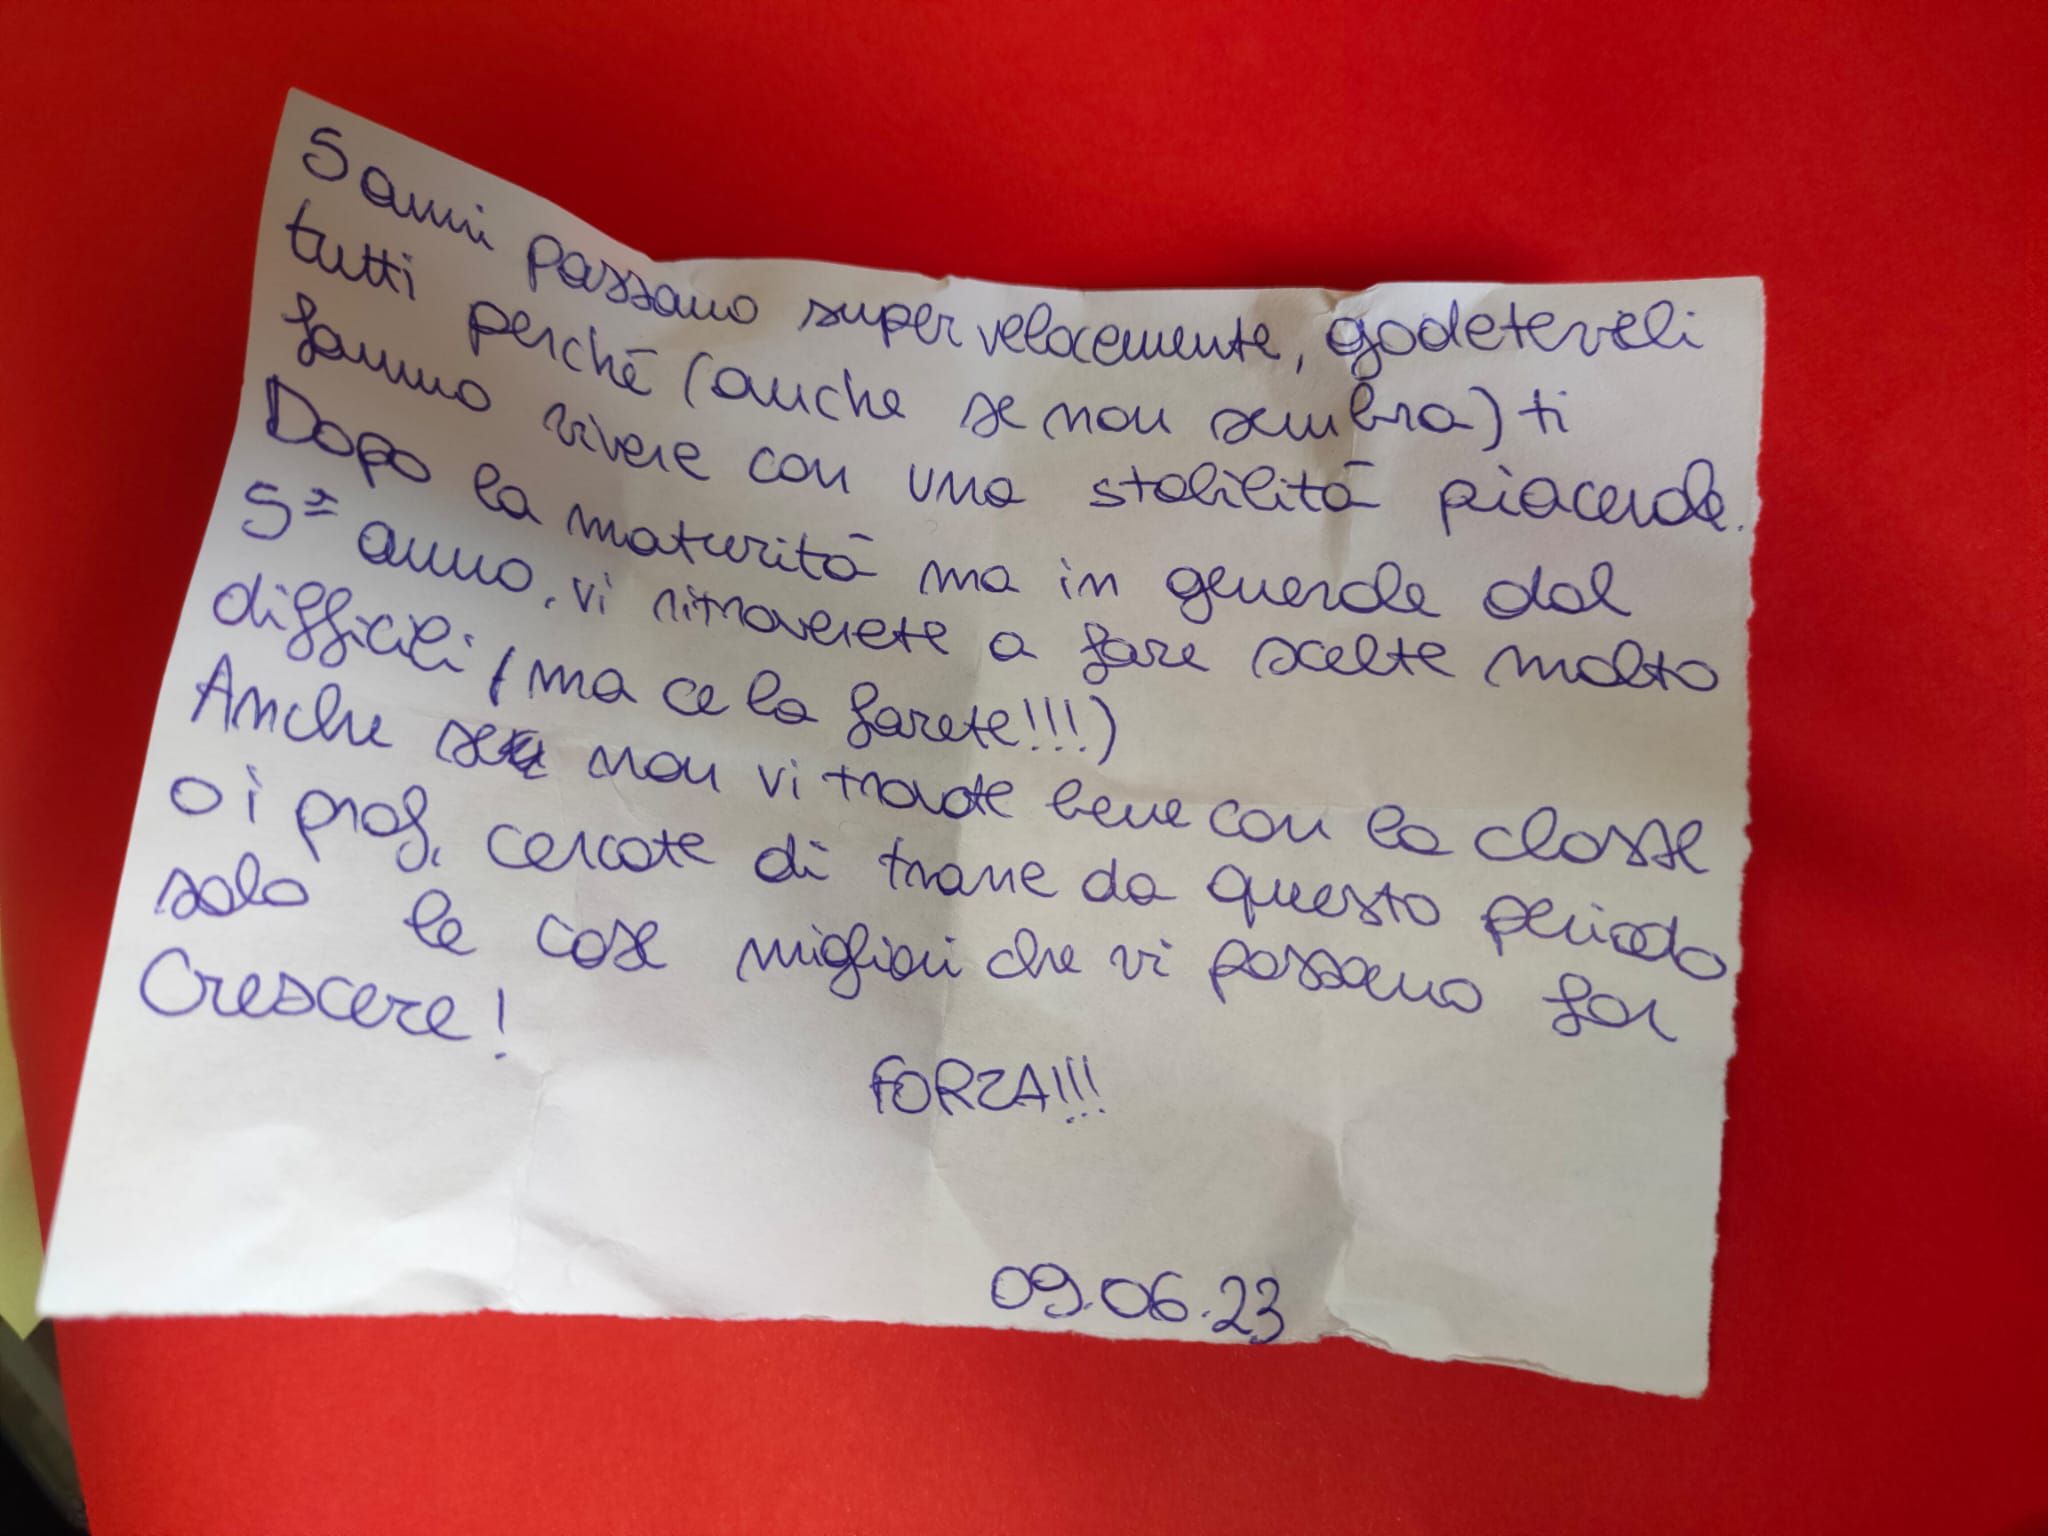 5 anni passano super velocemente, godeteveli
tutti perché (anche se non sembra) ti
fanno vivere con una stabilità piacevole.
Dopo la maturità ma in generale dal
5° anno, vi ritroverete a fare scelte molto
difficili (ma ce la farete!!!)
Anche se non vi trovate bene con la classe
o i prof, cercate di trarre da questo periodo
solo le cose migliori che vi possano far
Crescere!
FORZA!!!
09.06.23